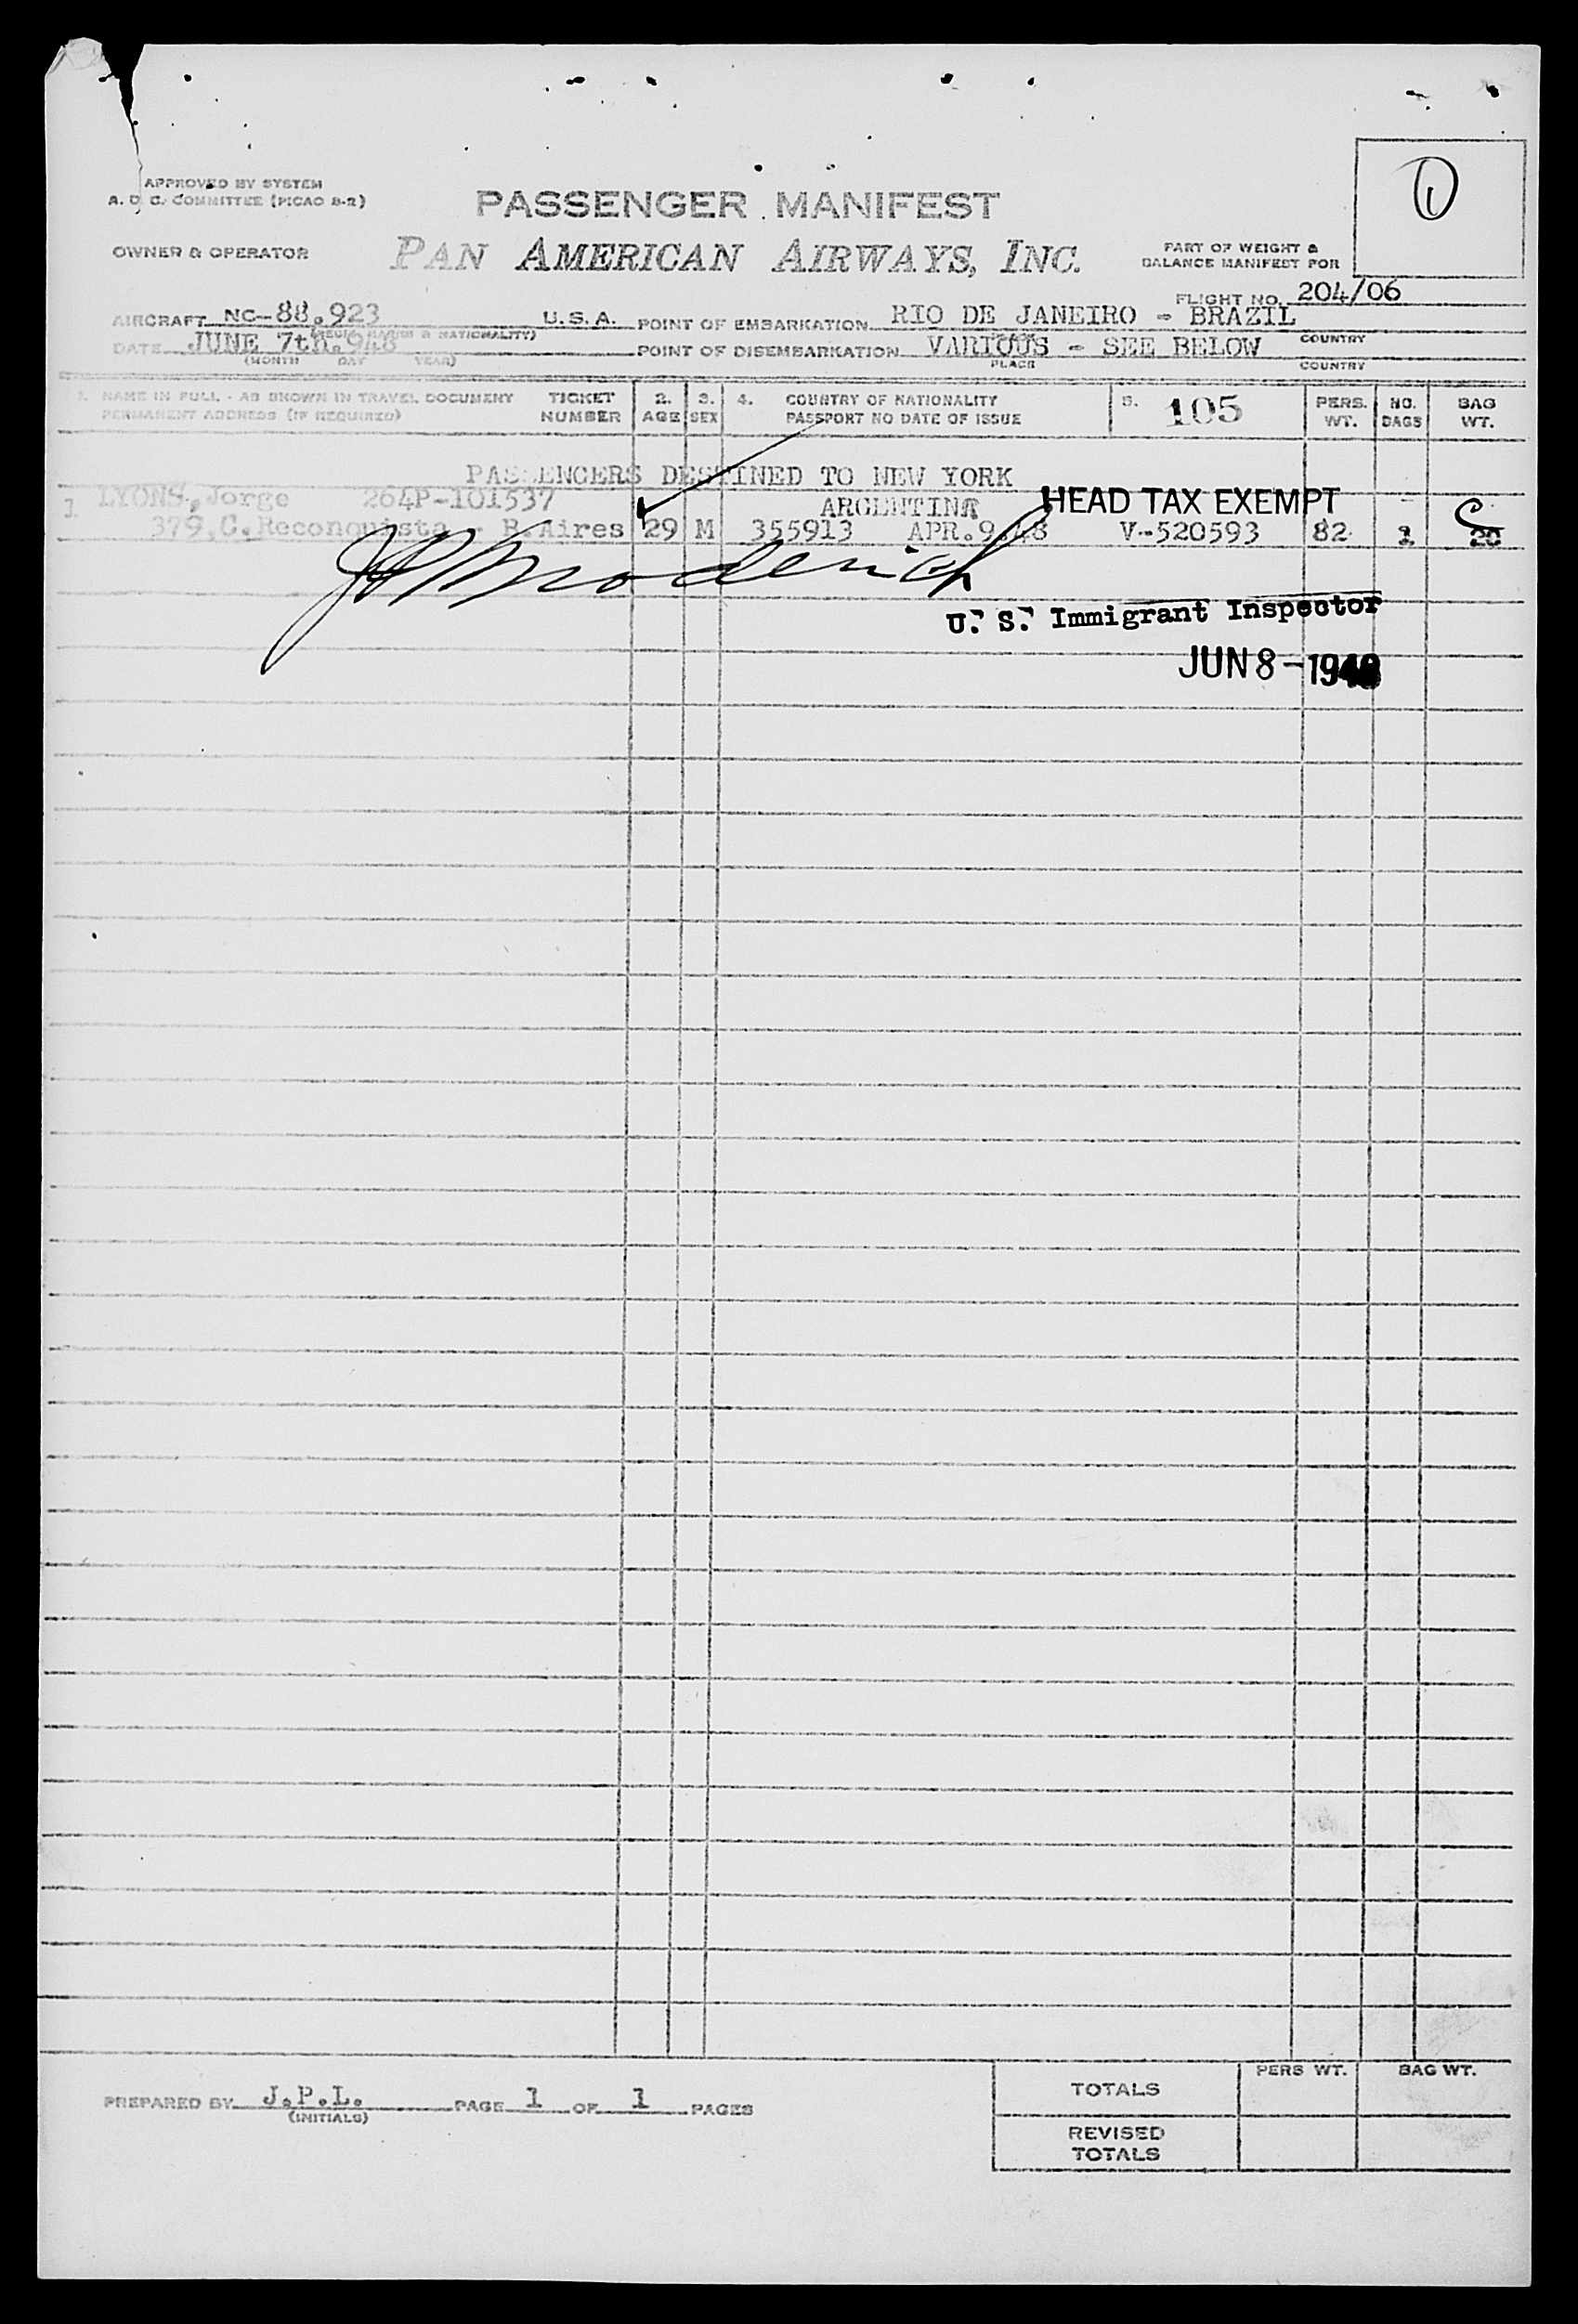 APPROVED BY SYSTEM
A. O. C. COMMITTEE (PICAO 8-2)
PASSENGER MANIFEST
OWNER & OPERATOR
PAN AMERICAN AIRWAYS, INC.
PART OF WEIGHT &
BALANCE MANIFEST FOR
FLIGHT NO. 204/06
AIRCRAFT NC-88.923 U.S.A. POINT OF EMBARKATION RIO DE JANEIRO - BRAZIL
& NATIONALITY) COUNTRY
DATE JUNE 7th.948 POINT OF DISEMBARKATION VARIOUS - SEE BELOW
(MONTH DAY YEAR) PLACE COUNTRY
1. NAME IN FULL - AS SHOWN IN TRAVEL DOCUMENT TICKET 2. 3. 4. COUNTRY OF NATIONALITY 5. 105 PERS. NO. BAG
PERMANENT ADDRESS (IF REQUIRED) NUMBER AGE SEX PASSPORT NO DATE OF ISSUE WT. BAGS WT.
PASSENGERS DESTINED TO NEW YORK
1 LYONS, Jorge 264P-101537 ARGENTINA HEAD TAX EXEMPT
379, C. Reconquista - B.Aires 29 M 355913 APR.9.48 V-520593 82 2 20
U. S. Immigrant Inspector
JUN 8-1948
PREPARED BY J.P.L. PAGE 1 OF 1 PAGES
(INITIALS)
PERS WT. BAG WT.
TOTALS
REVISED
TOTALS